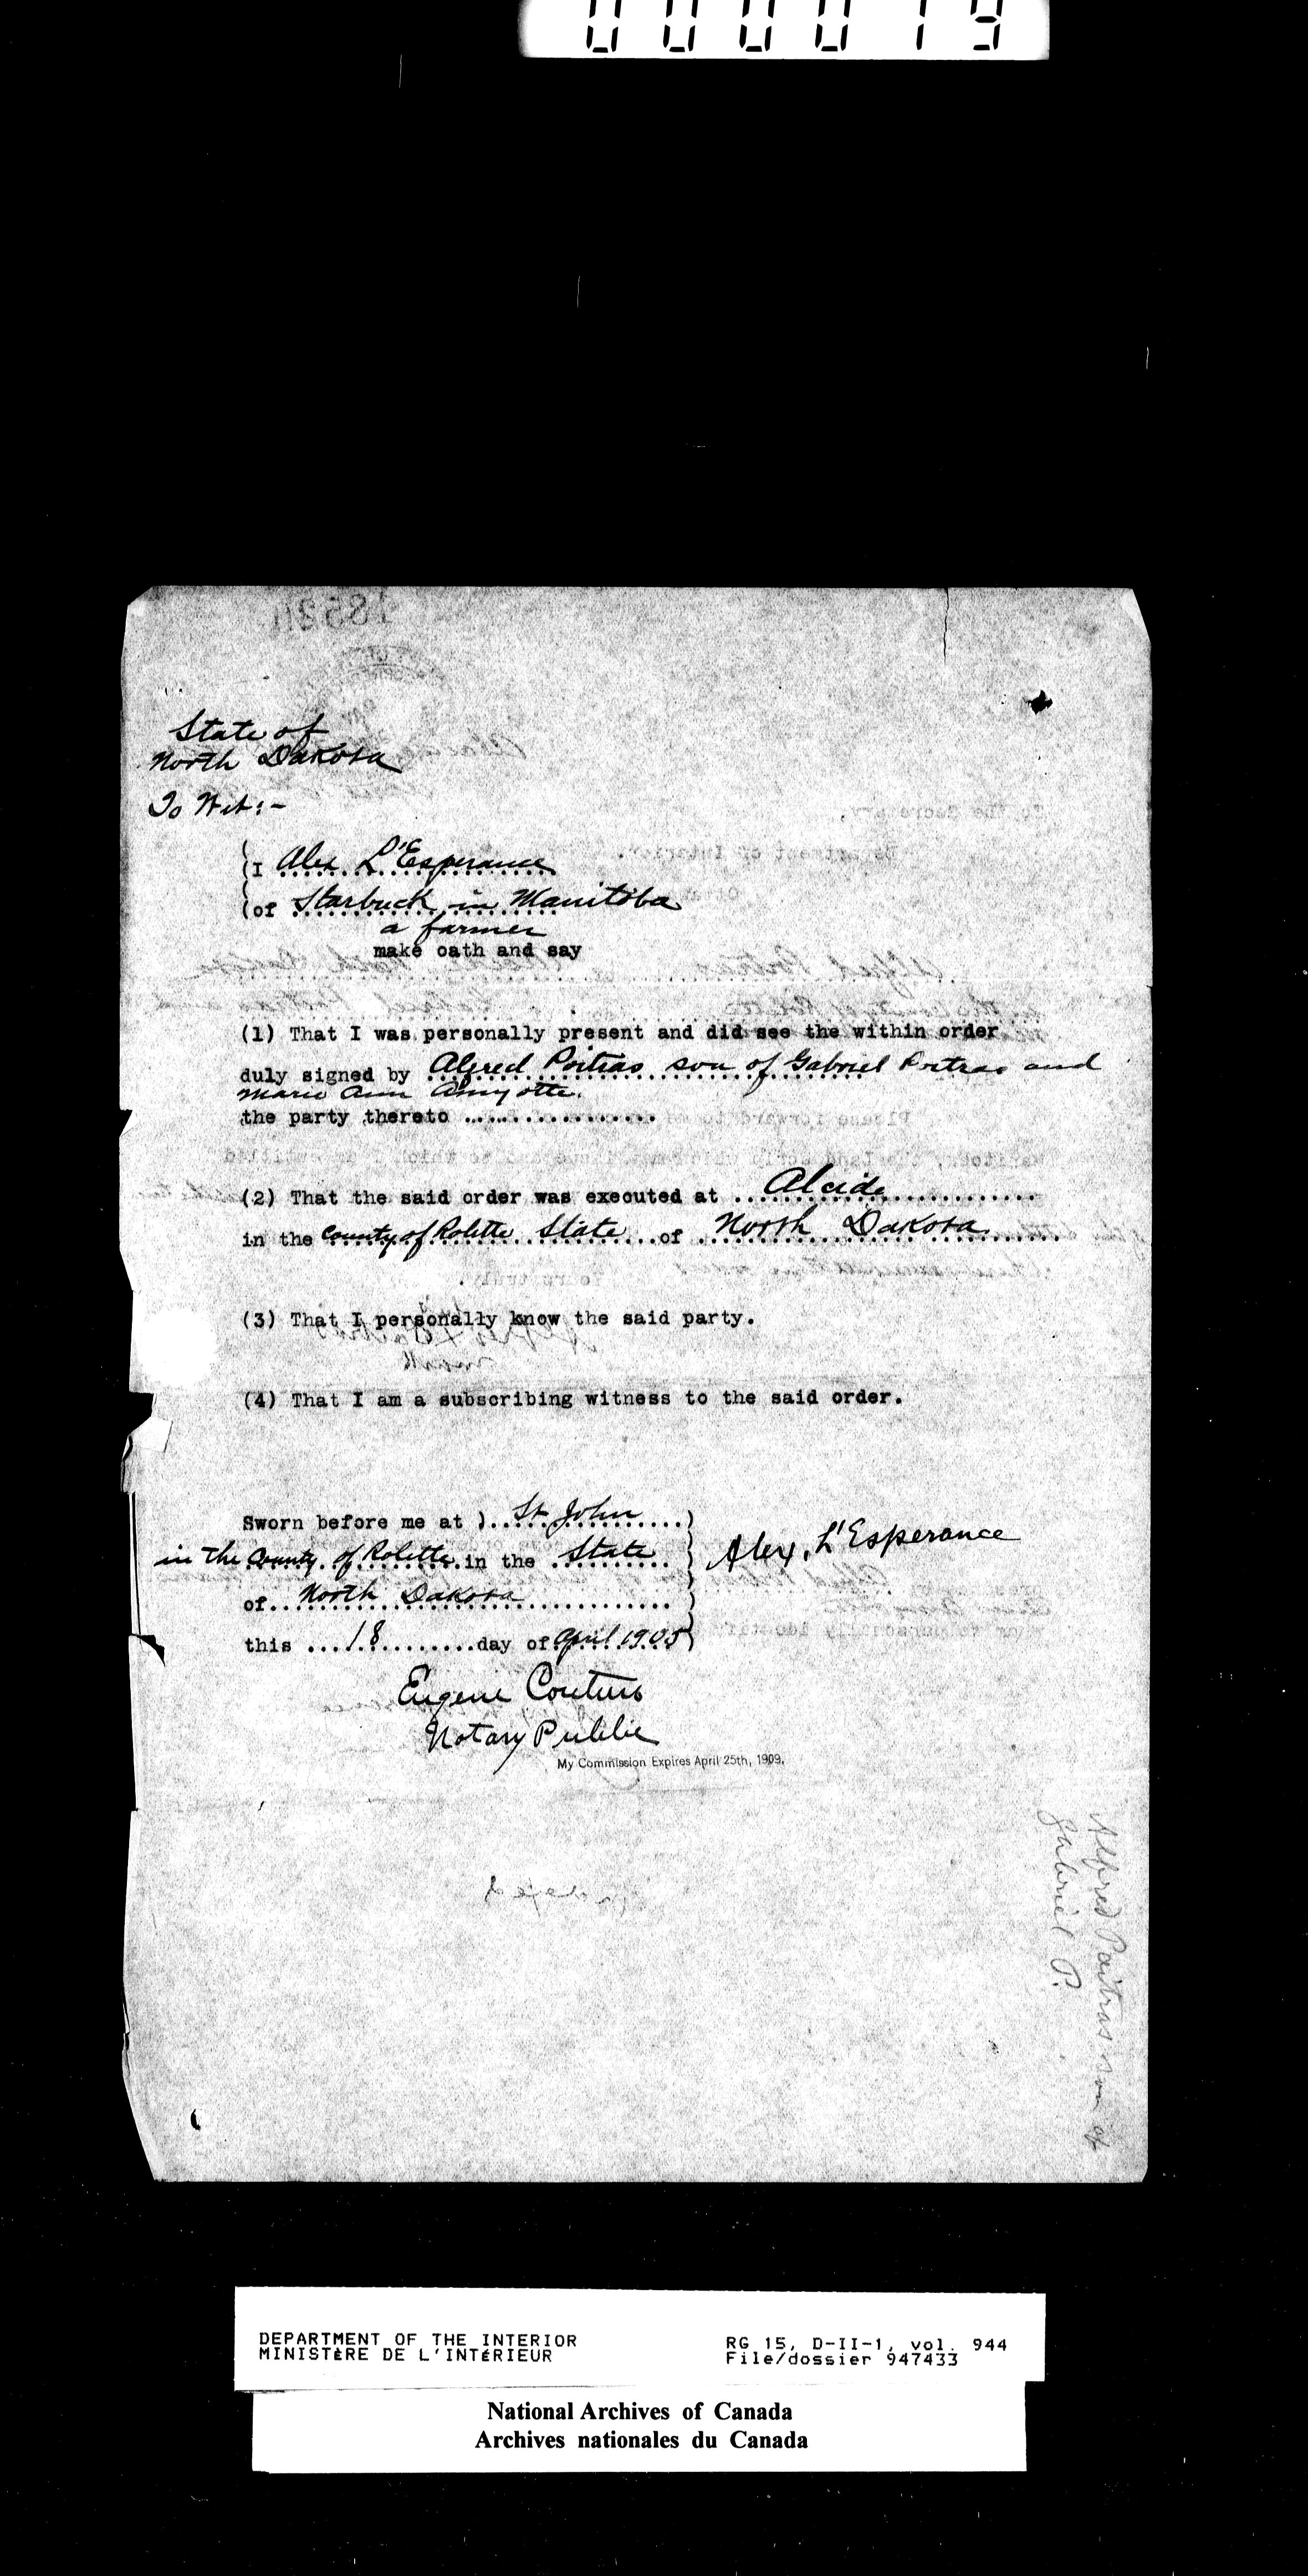 000019
State of
North Dakota
To Wit:-
I Alex L'Esperance
of Starbuck in Manitoba
a farmer
make oath and say
(1) That I was personally present and did see the within order
duly signed by Alfred Poitras son of Gabriel Poitras and
Marie Ann Amyotte.
the party thereto ................
(2) That the said order was executed at ...Alcide...............
in the County of Rolette State of North Dakota
(3) That I personally know the said party.
(4) That I am a subscribing witness to the said order.
Sworn before me at )..St John....)
in the County of Rolette in the State
Alex. L'Esperance
of..North Dakota..............
this ...18........day of April 1905
Eugene Couture
Notary Public
My Commission Expires April 25th, 1909.
Alfred Poitras son of
Gabriel P.
DEPARTMENT OF THE INTERIOR
MINISTÈRE DE L'INTÉRIEUR
RG 15, D-II-1, vol. 944
File/dossier 947433
National Archives of Canada
Archives nationales du Canada